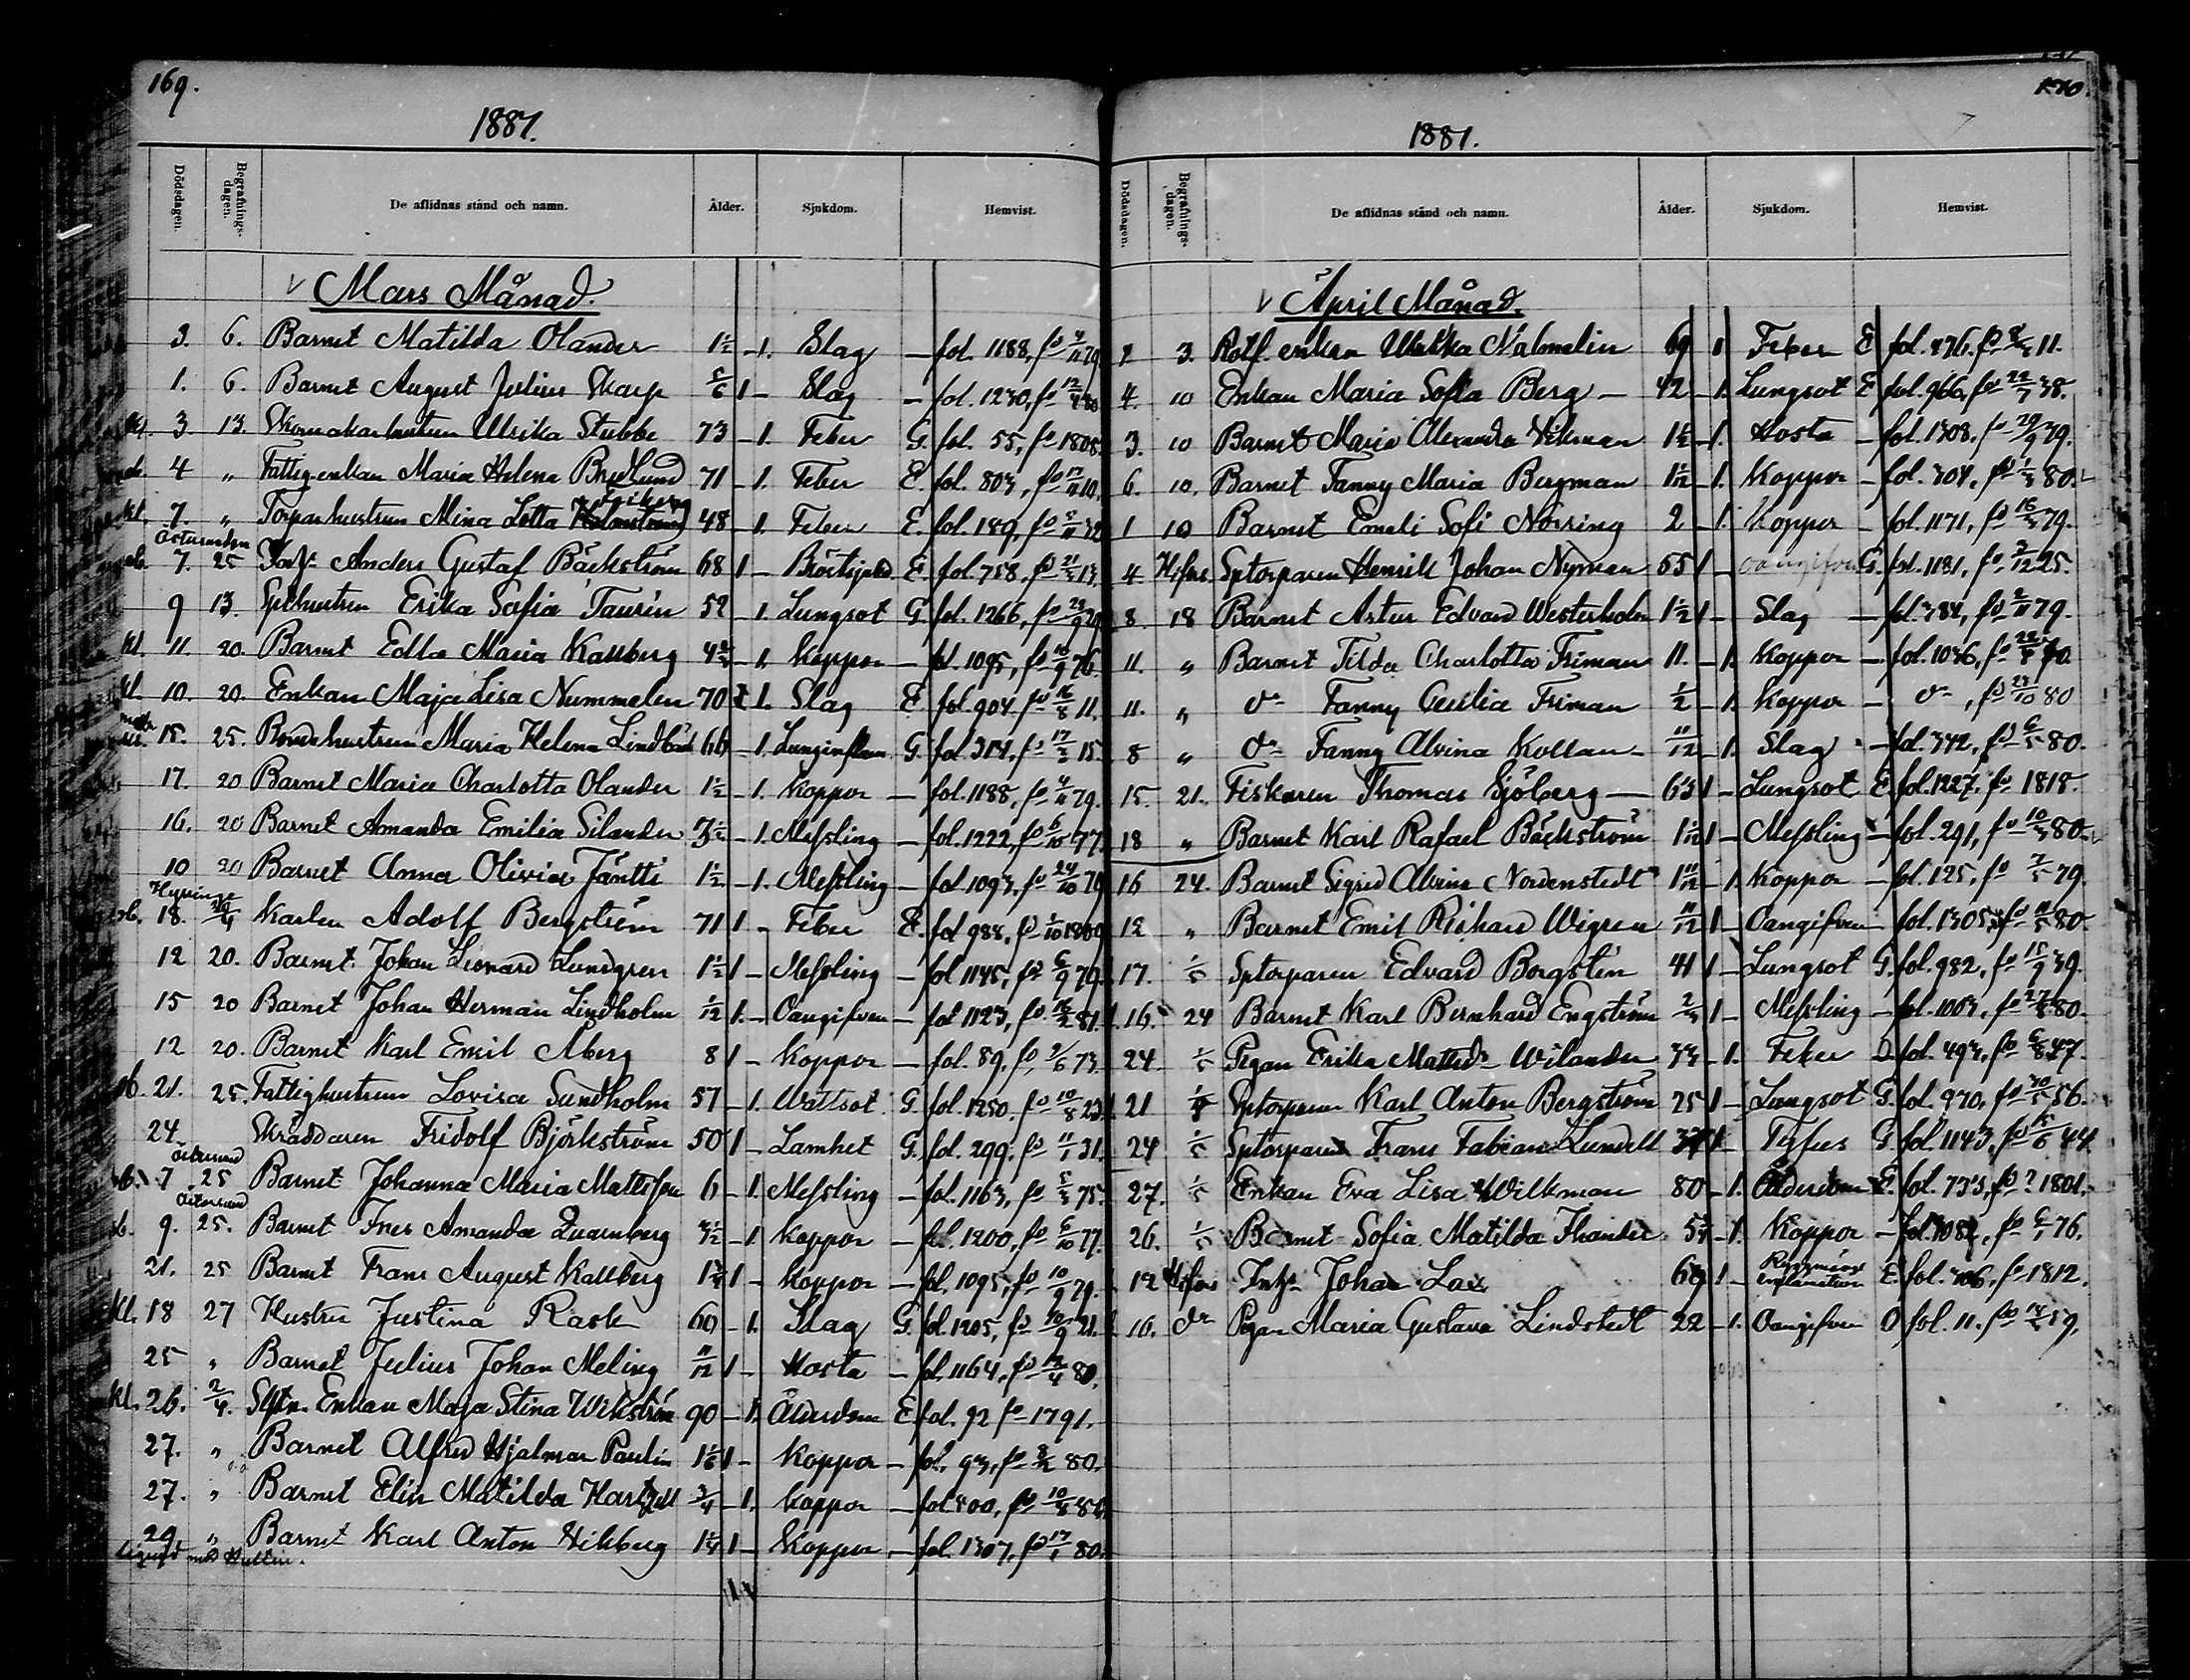 169.
1881.
Dödsdagen. Begrafnings-dagen. De aflidnas stånd och namn. Ålder. Sjukdom. Hemvist.
Mars Månad.
3. 6. Barnet Matilda Olander 1½ – 1. Slag – fol. 1188, fö 4/11 79
1. 6. Barnet August Julius Skarp 5/6 1 – Slag – fol. 1230, fö 12/4 80
3. 13. Skomakarhustrun Ulrika Stubbe 73 – 1. Feber G. fol. 55, fö 1808.
4 " Fattig-enkan Maria Helena Bredlund 71 – 1. Feber E. fol. 803, fö 17/11 10.
kl. 7. " Torparhustrun Mina Lotta 48 – 1. Feber E. fol. 189, fö 5/11 32
Östersunda
sb. 7. 25 Anders Gustaf Bäckström 68 1 – E. fol. 758, fö 21/3 13.
9 13. Erika Sofia Taurén 52 – 1. Lungsot G. fol. 1266, fö 29/9 29
kl. 11. 20. Barnet Edla Maria Kallberg 4 – 1. Koppor – fol. 1095, fö 10/9 76.
kl. 10. 20. Enkan Maja Lisa Nummelin 70 1. Slag E fol. 904. fö 16/8 11.
15. 25. Bondehustrun Maria Helena Lindblad 66 – 1. Lunginflam. G. fol 314, fö 17/2 15.
17. 20 Barnet Maria Charlotta Olander 1½ – 1. Koppor – fol. 1188, fö 4/11 79.
16. 20 Barnet Amanda Emilia Silander 3½ – 1. Messling – fol. 1222, fö 6/10 77.
10 20 Barnet Anna Olivia Jäntti 1½ – 1. Messling – fol 1093, fö 24/10 79
sb. 18. Karlen Adolf Bergström 71 1 – Feber E. fol 988, fö 1/10 1809
12 20. Barnet Johan Leonard Lundgren 1½ 1 – Messling – fol 1145, fö 6/9 79.
15 20 Barnet Johan Herman Lindholm 1/12 1. – Oangifven – fol 1123, fö 16/2 81.
12 20. Barnet Karl Emil Åberg 8 1 – Koppor – fol. 89. fö 2/6 73.
sb. 21. 25. Fattighustrun Lovisa Sundholm 57 – 1. Wattsot G. fol. 1250. fö 10/8 23
24. Skräddaren Fridolf Björkström 50 1 – Lamhet G. fol. 299. fö 11/1 31.
Östersund
sb. 7 25 Barnet Johanna Maria Mattsson 6 – 1. Messling – fol. 1163, fö 5/3 75.
Östersund
sb. 9. 25. Barnet Ines Amanda Quarnberg 3½ – 1. Koppor – fol. 1200, fö 6/10 77.
21. 25 Barnet Frans August Kallberg 1½ 1 – Koppor – fol. 1095, fö 10/9 79.
kl. 18 27 Hustru Justina Rask 60 – 1. Slag G. fol. 1205, fö 10/9 21.
25 " Barnet Julius Johan Meling 11/12 1 – Hosta – fol. 1164, fö 12/4 80.
kl. 26. 2/4. Enkan Maja Stina Wikström 90 – 1. Ålderdom E. fol. 92 fö 1791.
27. " Barnet Alfred Hjalmar Paulin 1 1/6 1 – Koppor – fol. 93, fö 8/2 80.
27. " Barnet Elin Matilda Hartzell 3/4 – 1. Koppor – fol. 800, fö
29 " Barnet Karl Anton Vikberg 1¼ 1 – Koppor – fol. 1307, fö 17/1 80.
170.
1881.
Dödsdagen. Begrafnings-dagen. De aflidnas stånd och namn. Ålder. Sjukdom. Hemvist.
April Månad.
3. Rotf. enkan Ulrika Malmelin 69 1 Feber E fol. 276. fö 11.
4. 10 Enkan Maria Sofia Berg – 42 – 1. Lungsot E fol. 966, fö 22/7 38.
3. 10 Barnet Maria Alexandra Vikman 1½ – 1. Hosta – fol. 1308, fö 29/9 79.
6. 10. Barnet Fanny Maria Bergman 1 1/12 – 1. Koppor – fol. 304, fö 1/3 80.
1 10 Barnet Emeli Sofi Norring 2 – 1. Koppor – fol. 1171, fö 16/3 79.
4 H:fors. Sptorparen Henrik Johan Nyman 55 1 – oangifven G. fol. 1181, fö 3/12 25.
8. 18 Barnet Artur Edvard Westerholm 1½ 1 – Slag – fol. 382, fö 2/11 79.
11. " Barnet Tilda Charlotta Friman 11. – 1. Koppor – fol. 1036, fö 22/5 70.
11. " do Fanny Cecilia Friman ½ – 1. Koppor – do, fö 23/10 80
8 " do Fanny Alvina Kollan – 11/12 – 1. Slag – fol. 342, fö 6/5 80.
15. 21. Fiskaren Thomas Sjöberg – 63 1 – Lungsot E fol. 1227. fö 1818.
18 " Barnet Karl Rafael Bäckström 1 1/12 1 – Messling – fol. 291, fö 10/3 80.
16 24. Barnet Sigrid Alvina Nordenstedt 1 11/12 – 1. Koppor – fol. 125, fö 7/5 79.
12 " Barnet Emil Rikhard Wigren 11/12 1 – Oangifven – fol. 1305, fö 11/5 80.
17. 1/5 Sptorparen Edvard Borgstén 41 1 – Lungsot G. fol. 982, fö 15/9 39.
16. 24 Barnet Karl Bernhard Engström 2/3 1 – Messling – fol. 1003, fö 80.
24. 1/5 Pigan Erika Matilda Wilander 33 – 1. Feber O. fol. 493, fö 6/8 47.
21 1/5 Sptorparen Karl Anton Bergström 25 1 – Lungsot G. fol. 970, fö 30/5 56.
24 1/5 Sptorparen Frans Fabian Lundell 1 – Tyfus G fol. 1143, fö 44.
27. 1/5 Enkan Eva Lisa Wilkman 80 – 1. Ålderdom E. fol. 733, fö ? 1801.
26. 1/5 Barnet Sofia Matilda Thander – 1. Koppor – fol. 1082, fö 6/1 76.
12 H:fors Johan Lax 69 1 – Ryggmärgs inflamation E fol. 306, fö 1812.
16. do Pigan Maria Gustava Lindstedt 22 – 1. Oangifven O fol. 11. fö 14/3 59.